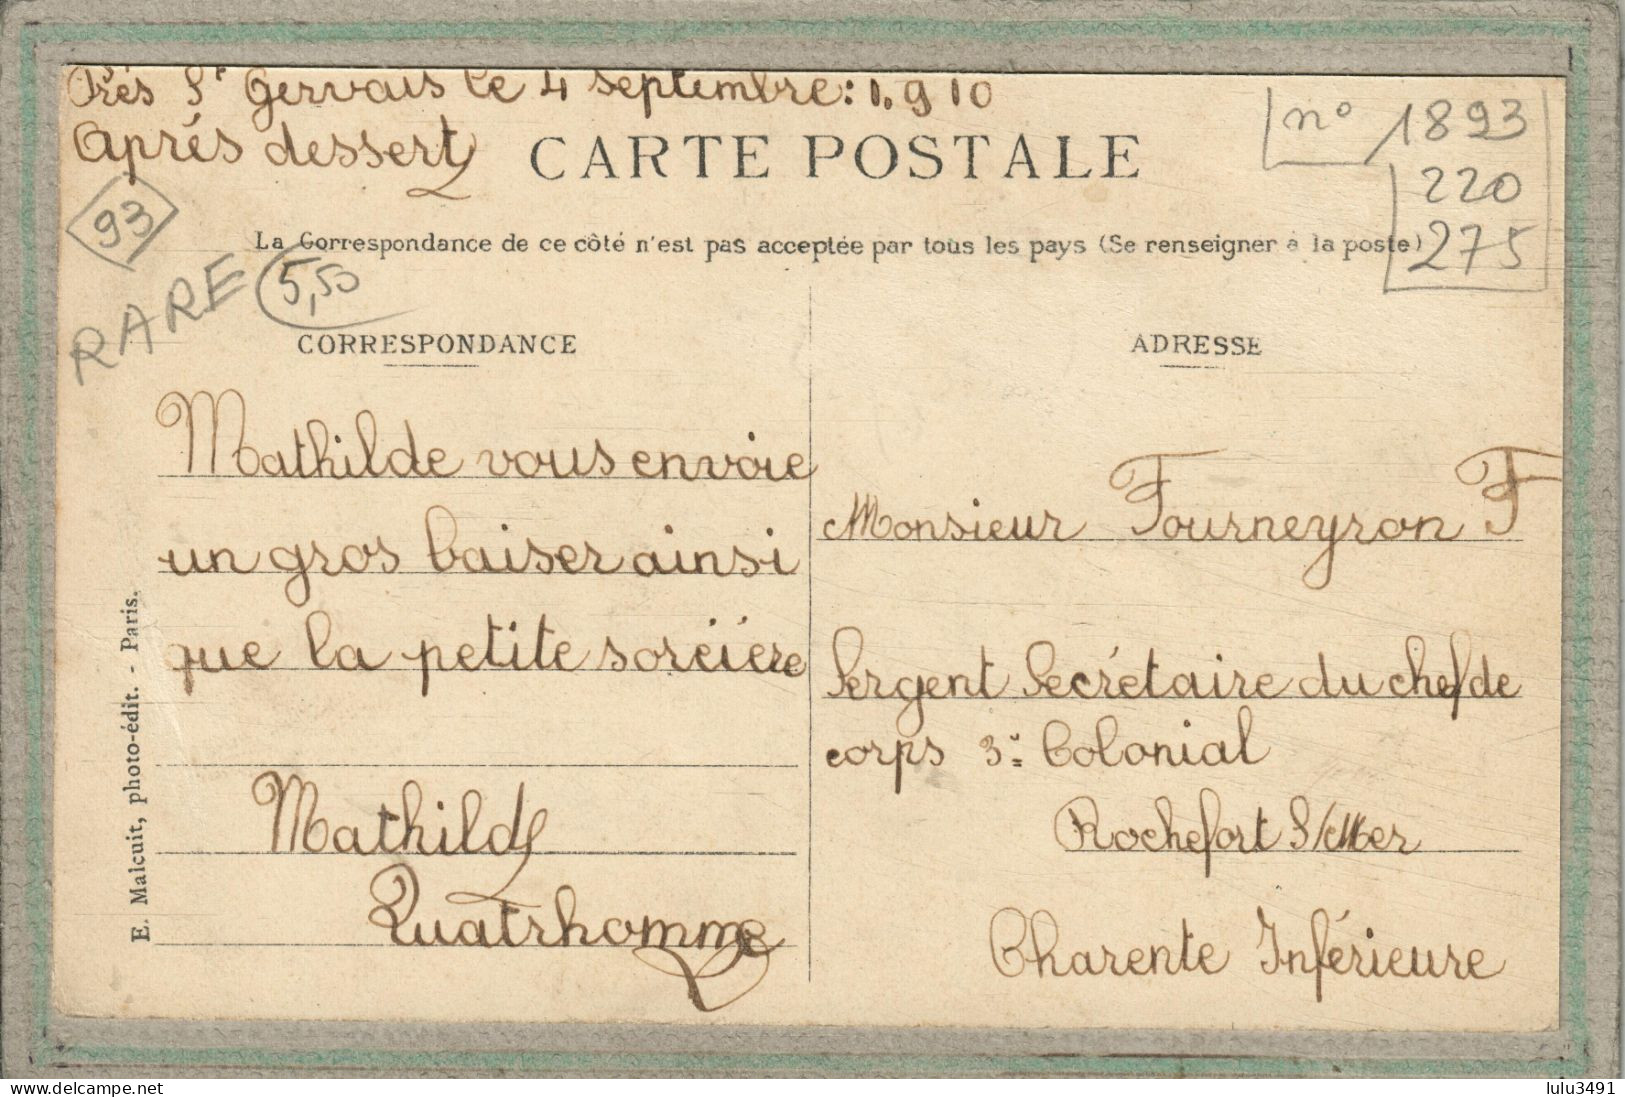 Prés St Gervais le 4 septembre: 1.910
Après dessert
CARTE POSTALE
n° 1893
220
275
93
RARE
5,50
La Correspondance de ce côté n'est pas acceptée par tous les pays (Se renseigner à la poste)
CORRESPONDANCE
Mathilde vous envoie
un gros baiser ainsi
que la petite sorcière
Mathilde
Quatrhomme
ADRESSE
Monsieur Fourneyron F
Sergent Secrétaire du chef de
corps 3e Colonial
Rochefort S/Mer
Charente Inférieure
E. Malcuit, photo-édit. - Paris.
www.delcampe.net
lulu3491